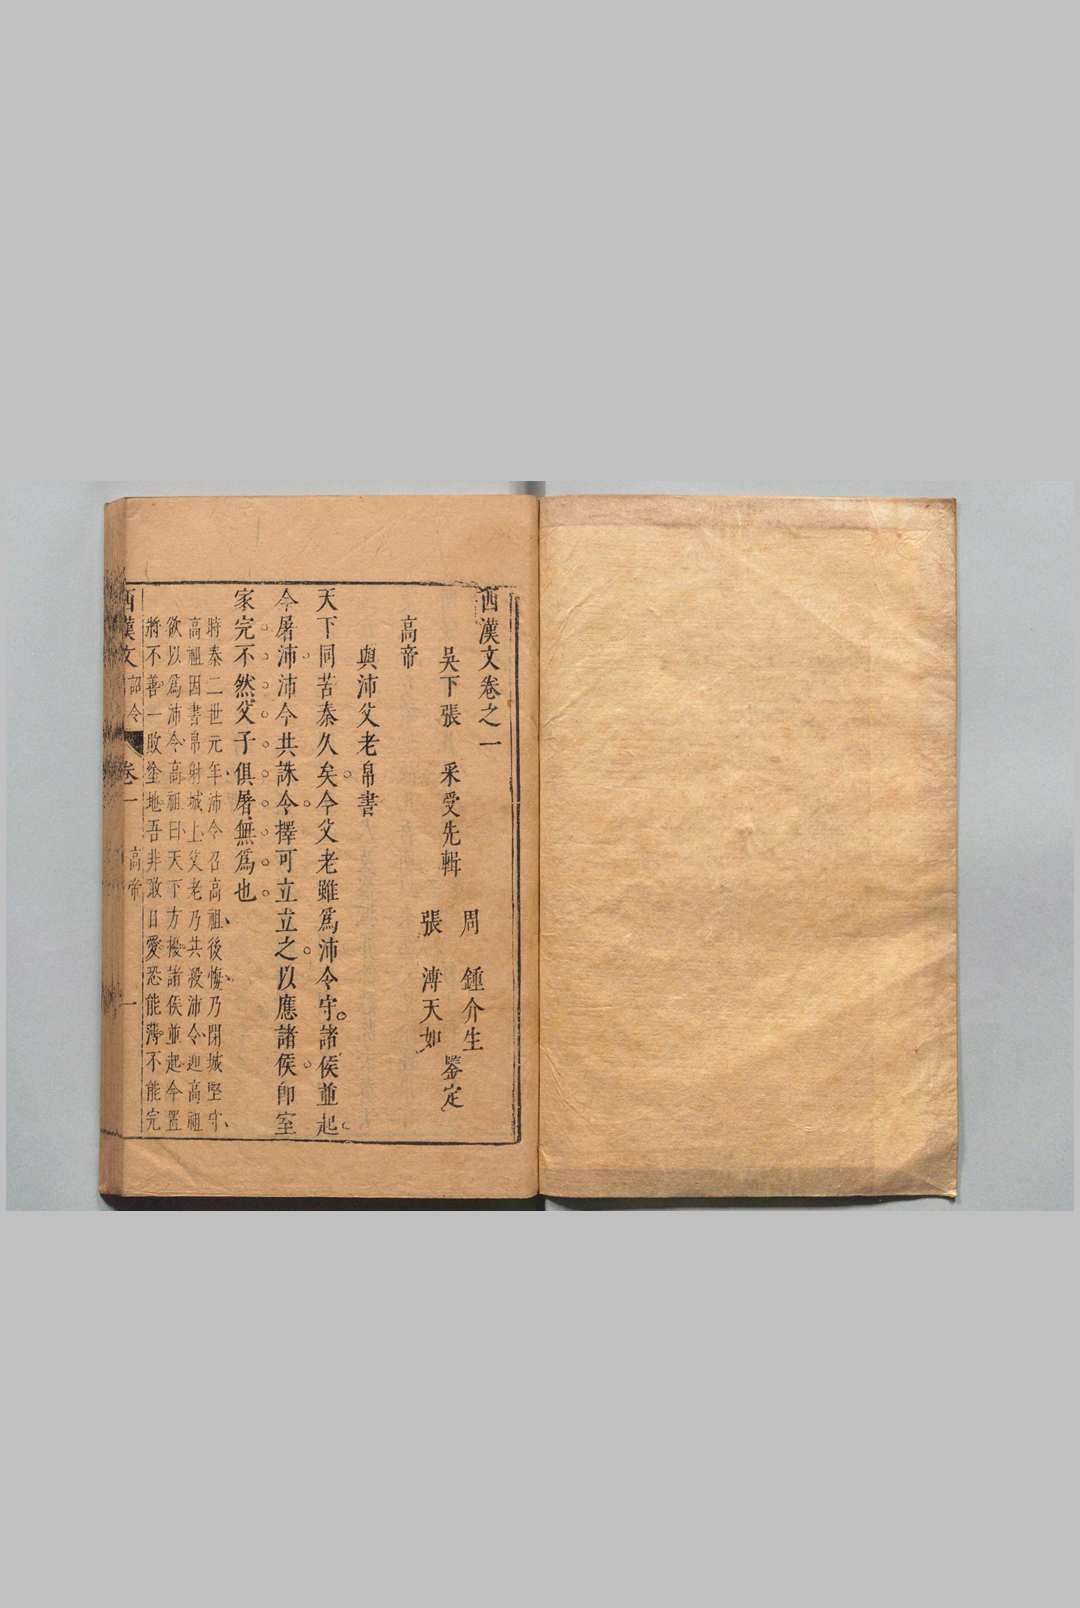 西漢文卷之一
周鍾介生
吳下張采受先輯
鑒定
張溥天如
高帝
與沛父老帛書
天下同苦秦久矣今父老雖爲沛令守諸侯並起
今屠沛沛今共誅令擇可立立之以應諸侯卽室
家完不然父子俱屠無爲也
時秦二世元年沛令召高祖後悔乃閉城堅守
高祖因書帛射城上父老乃共殺沛令迎高祖
欲以爲沛令高祖曰天下方擾諸侯並起今置
將不善一敗塗地吾非敢自愛恐能薄不能完
西漢文 詔令 卷一 高帝 一